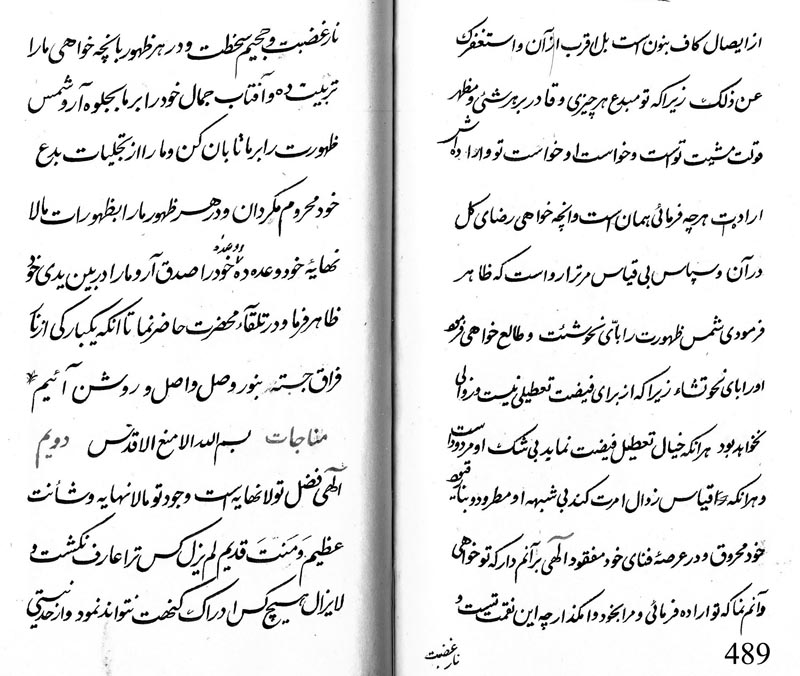 از ایصال کاف بنون است بل اقرب از آن و استغفرک
عن ذلک زیرا که تو مبدع هر چیزی و قادر بر هر شئی و مظهر
قولت مشیت تو است و خواست او خواست تو و اراده اش
ارادهٔ هر چه فرمائی همان است و آنچه خواهی رضای کل
در آن و سپاس بی قیاس مر ترا رواست که ظاهر
فرمودی شمس ظهورت را بای نحو شئت و طالع خواهی فرمود
او را بای نحو تشاء زیرا که از برای فیضت تعطیلی نیست و زوالی
نخواهد بود هر آنکه خیال تعطیل فیضت نماید بی شک او مردود است
و هر آنکه قیاس زوال امرت کند بی شبهه او مطرود و بنار قهر
خود محروق و در عرصهٔ فنای خود مفقود الهی بر آنم دار که تو خواهی
و آنم نما که تو اراده فرمائی و مرا بخود وا مگذار چه این نقمت تست و
نار غضبت
489
نار غضبت و جحیم سخطت و در هر ظهور بآنچه خواهی ما را
تربیت ده و آفتاب جمال خود را بر ما بجلوه آر و شمس
ظهورت را بر ما تابان کن و ما را از تجلیات بدع
خود محروم مگردان و در هر ظهور ما را بظهورات مالا
نهایهٔ خود وعده ده و وعده خود را صدق آر و ما را در بین یدی خود
ظاهر فرما و در تلقآء محضرت حاضر نما تا آنکه یکبارکی از نار
فراق جسته بنور وصل واصل و روشن آئیم
مناجات بسم الله الامنع الاقدس دویم
الهی فضل تو لا نهایه است و جود تو مالا نهایه و شأنت
عظیم و منت قدیم لم یزل کس ترا عارف نکشت و
لا یزال هیچ کس ادراک کنهت نتواند نمود و از حد نیستی